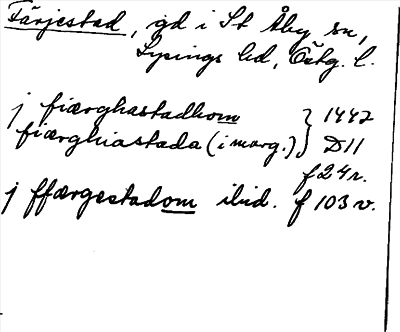 Färjestad, gd i St Åby sn,
Lysings hd, Östg. l.
j fiærghastadhom } 1447
fiærghiastada (i marg.) } D11
f 24 r.
j ffærgestadom ibid. f 103 v.